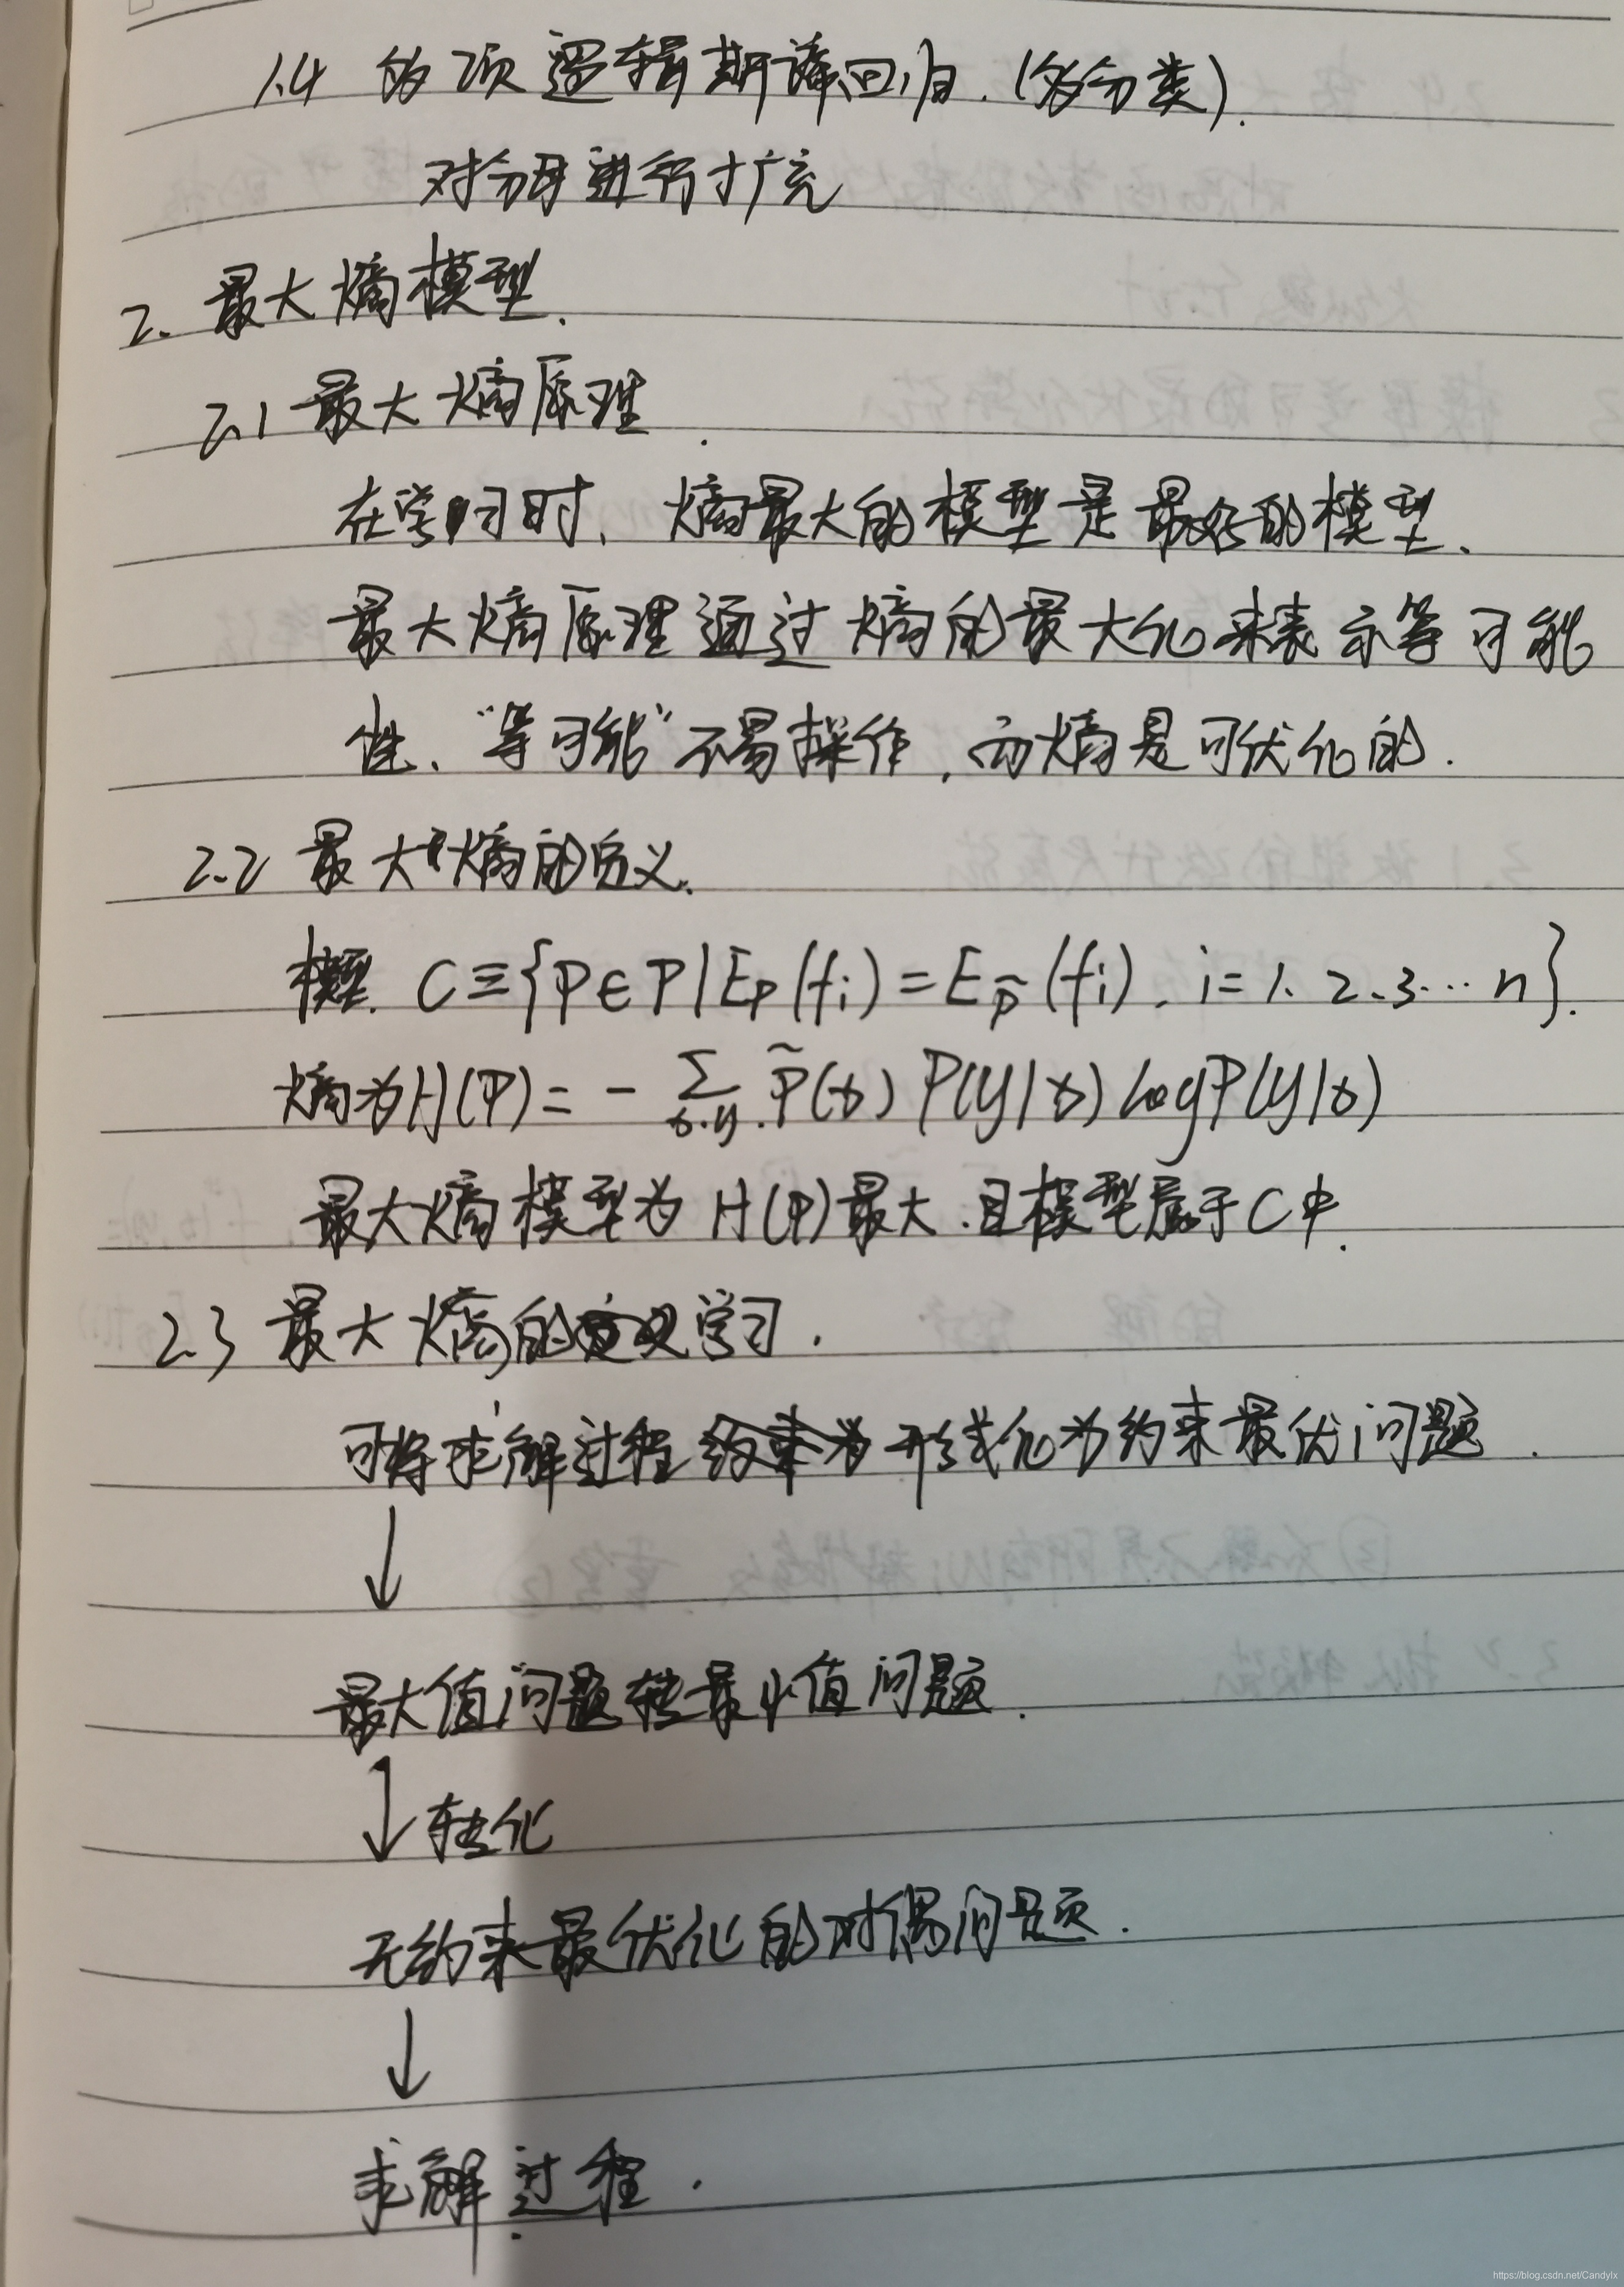 1.4 多项逻辑斯谛回归.(多分类).
对分母进行扩充
2. 最大熵模型.
2.1 最大熵原理.
在学习时、熵最大的模型是最好的模型、
最大熵原理通过熵的最大化来表示等可能
性、“等可能”不易操作,而熵是可优化的.
2.2 最大熵的定义.
模型. C≡{P∈P|E_P(f_i)=E_P̃(f_i), i=1、2、3…n}.
熵为H(P)= - ∑_{x.y}. P̃(x) P(y|x) log P(y|x)
最大熵模型为 H(P)最大.且模型属于C中.
2.3 最大熵的学习.
可将求解过程形式化为约束最优问题.
↓
最大值问题转最小值问题.
↓转化
无约束最优化的对偶问题.
↓
求解过程.
https://blog.csdn.net/Candylx